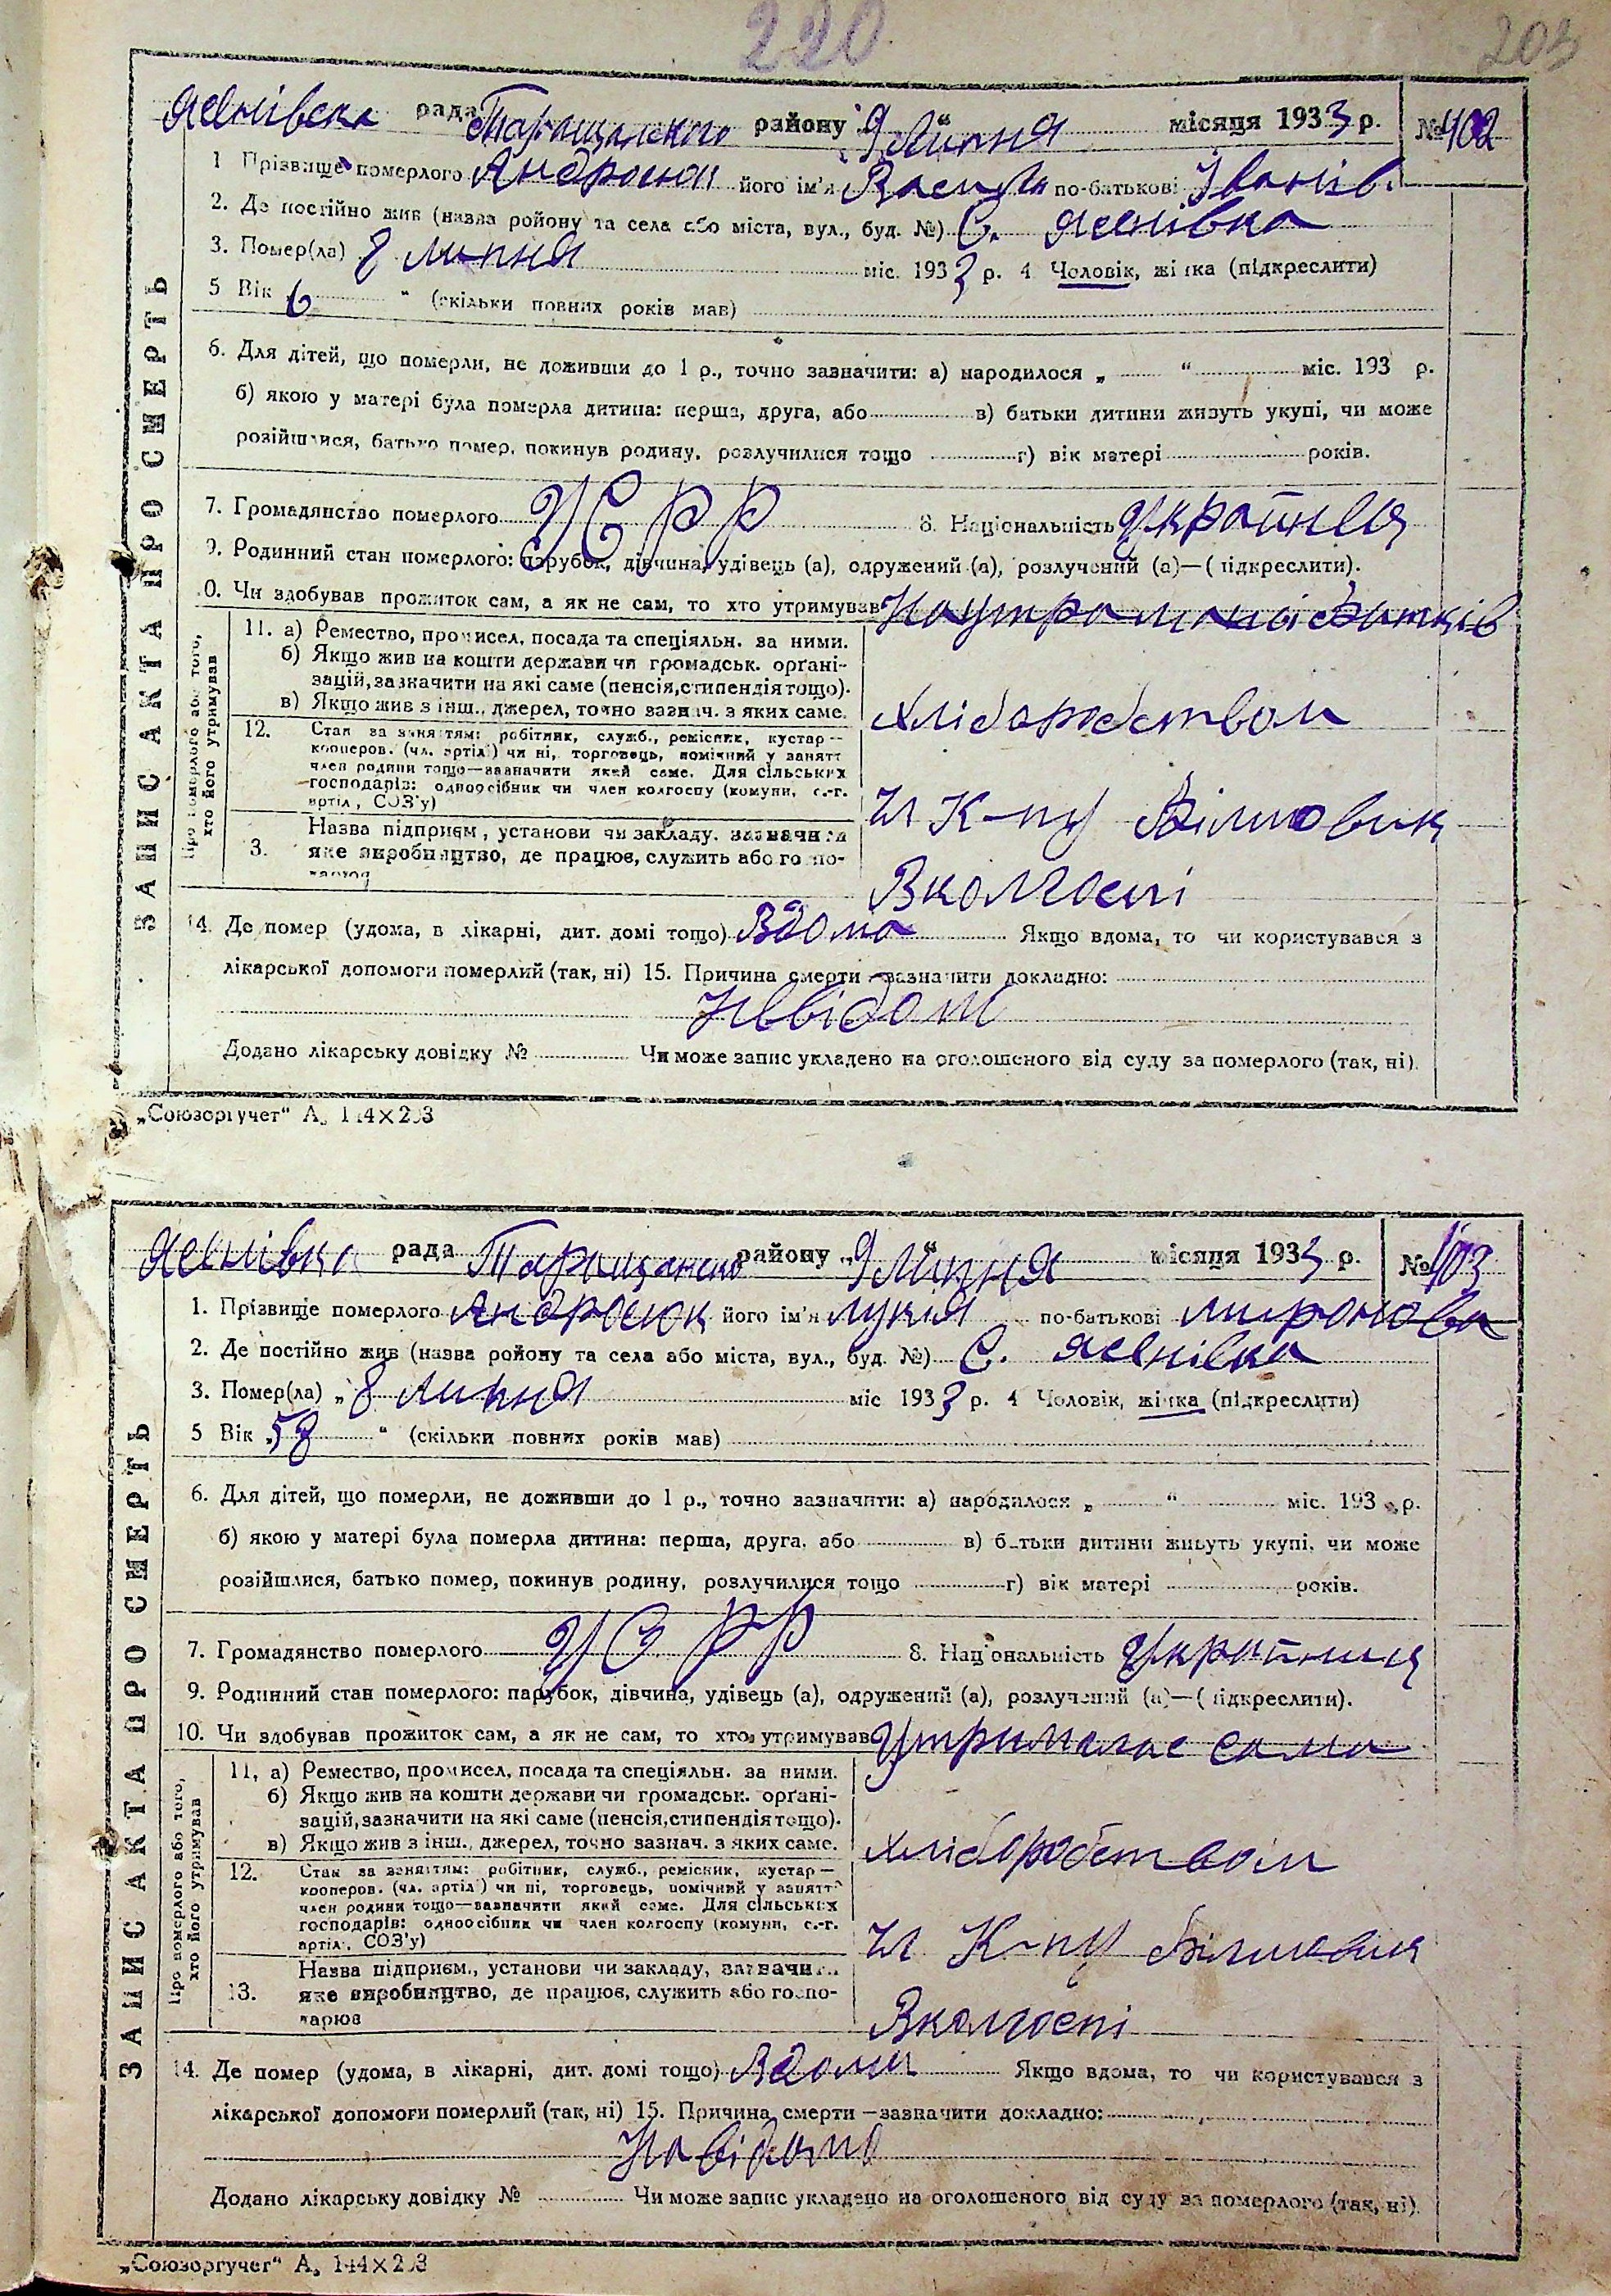 220
203
Яснівська рада Таращанського району „9“ Липня місяця 1933 р. № 402
1 Прізвище померлого Андросюк його ім'я Василь по-батькові Іванів.
2. Де постійно жив (назва ройону та села або міста, вул., буд. №) С. Яснівка
3. Помер(ла) 8 липня міс. 1933 р. 4 Чоловік, жінка (підкреслити)
5 Вік 6 “ (скільки повних років мав)
6. Для дітей, що померли, не доживши до 1 р., точно зазначити: а) народилося „ “ міс. 193 р.
б) якою у матері була померла дитина: перша, друга, або в) батьки дитини живуть укупі, чи може
розійшлися, батько помер, покинув родину, розлучилися тощо г) вік матері років.
7. Громадянство померлого УСРР 8. Національність Українця
9. Родинний стан померлого: парубок, дівчина, удівець (а), одружений (а), розлучений (а)—(підкреслити).
0. Чи здобував прожиток сам, а як не сам, то хто утримував На утриманні батьків
ЗАПИС АКТА ПРО СМЕРТЬ
Про померлого або того,
хто його утримував
11. а) Ремество, промисел, посада та спеціяльн. за ними.
б) Якщо жив на кошти держави чи громадськ. орґані-
зацій, зазначити на які саме (пенсія, стипендія тощо).
в) Якщо жив з інш., джерел, точно зазнач. з яких саме.
Хліборобством
12. Стан за заняттям: робітник, служб., ремісник, кустар—
кооперов. (чл. артілі) чи ні, торговець, помічний у занятт
член родини тощо—зазначити який саме. Для сільських
господарів: одноосібник чи член колгоспу (комуни, с.-г.
артіл, СОЗ'у)
Чл К-пу Більшовик
Назва підприєм., установи чи закладу, зазначити
3. яке виробництво, де працює, служить або госпо-
дарює
В колгоспі
14. Де помер (удома, в лікарні, дит. домі тощо) Вдома Якщо вдома, то чи користувався з
лікарської допомоги померлий (так, ні) 15. Причина смерти—зазначити докладно:
Невідом
Додано лікарську довідку № Чи може запис укладено на оголошеного від суду за померлого (так, ні).
„Союзоргучет“ А, 144×203
Яснівка рада Таращансько району „9“ Липня місяця 1933 р. № 403
1. Прізвище померлого Андросюк його ім'я Лукія по-батькові Миронова
2. Де постійно жив (назва ройону та села або міста, вул., буд. №) С. Яснівка
3. Помер(ла) „8 Липня міс 1933 р. 4 Чоловік, жінка (підкреслити)
5 Вік „58 “ (скільки повних років мав)
6. Для дітей, що померли, не доживши до 1 р., точно зазначити: а) народилося „ “ міс. 193 р.
б) якою у матері була померла дитина: перша, друга, або в) батьки дитини живуть укупі, чи може
розійшлися, батько помер, покинув родину, розлучилися тощо г) вік матері років.
7. Громадянство померлого УСРР 8. Національність Україниця
9. Родинний стан померлого: парубок, дівчина, удівець (а), одружений (а), розлучений (а)—(підкреслити).
10. Чи здобував прожиток сам, а як не сам, то хто утримував Утрималас сама
ЗАПИС АКТА ПРО СМЕРТЬ
Про померлого або того,
хто його утримував
11, а) Ремество, промисел, посада та спеціяльн. за ними.
б) Якщо жив на кошти держави чи громадськ. орґані-
зацій, зазначити на які саме (пенсія, стипендія тощо).
в) Якщо жив з інш., джерел, точно зазнач. з яких саме.
Хліборобством
12. Стан за заняттям: робітник, служб., ремісник, кустар—
кооперов. (чл. артілі) чи ні, торговець, помічний у занятт
член родини тощо—зазначити який саме. Для сільських
господарів: одноосібник чи член колгоспу (комуни, с.-г.
артіл, СОЗ'у)
Чл К-пу Більшовик
Назва підприєм., установи чи закладу, зазначити
13. яке виробництво, де працює, служить або госпо-
дарює
В колгоспі
14. Де помер (удома, в лікарні, дит. домі тощо) Вдома Якщо вдома, то чи користувався з
лікарської допомоги померлий (так, ні) 15. Причина смерти—зазначити докладно:
Невідомо
Додано лікарську довідку № Чи може запис укладено на оголошеного від суду за померлого (так, ні).
„Союзоргучет“ А, 144×203